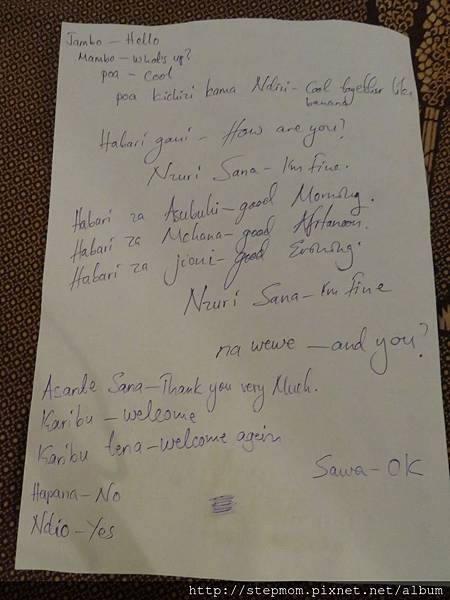 Jambo – Hello
Mambo – what's up?
poa – Cool
poa kichizi kama Ndizi – Cool together like
banana
Habari gani – How are you?
Nzuri Sana – I'm fine.
Habari za Asubuhi – good Morning.
Habari za Mchana – good Afrtanoon.
Habari za jioni – good Evening.
Nzuri Sana – I'm fine
na wewe – and you?
Asante Sana – Thank you very Much.
Karibu – welcome
Karibu tena – welcome again
Sawa – OK
Hapana – No
Ndio – Yes
http://stepmom.pixnet.net/album